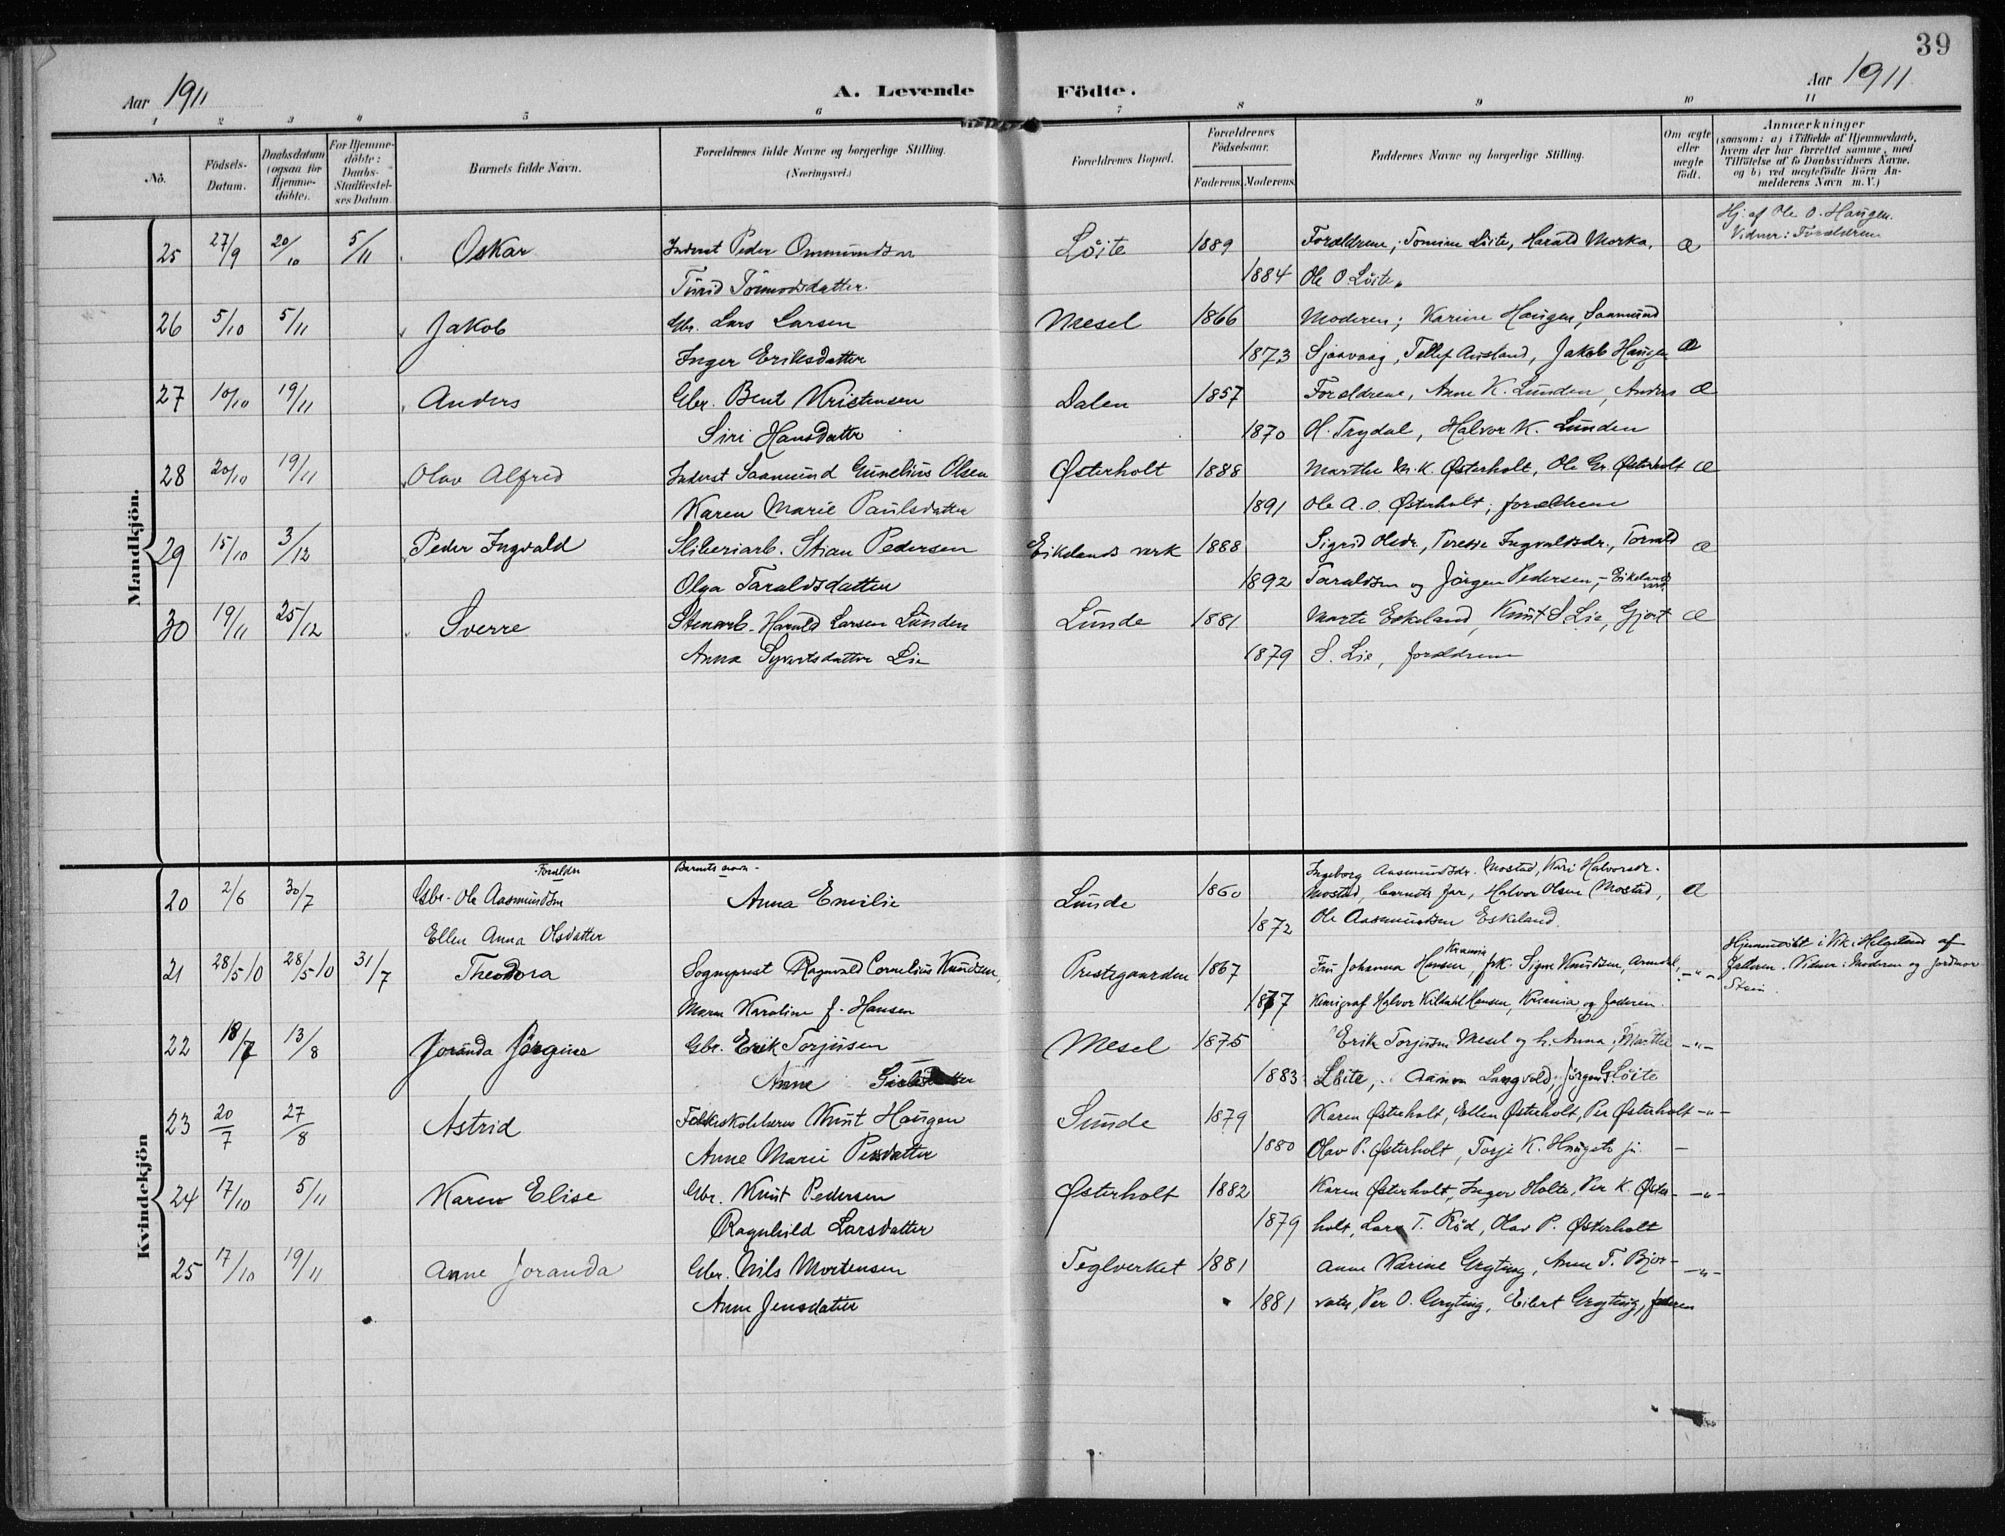 39
Aar 1911
A. Levende Födte.
Aar 1911.
1 2 3 4 5 6 7 8 9 10 11
No.
Födsels-Datum.
Daabsdatum (ogsaa for Hjemme-döbte).
For Hjemme-döbte: Daabs-Stadfestel-ses Datum
Barnets fulde Navn.
Forældrenes fulde Navne og borgerlige Stilling. (Næringsvei.)
Forældrenes Bopæl.
Forældrenes Födselsaar.
Faderens. Moderens.
Faddernes Navne og borgerlige Stilling.
Om ægte eller uægte födt.
Anmærkninger
(saasom: a) i Tilfælde af Hjemmedaab,
hvem der har forrettet samme, med
Tilföielse af to Daabsvidners Navne.
og b) ved uægtefödte Börn An-
melderens Navn m. V.)
Mandkjön.
25 27/9 20/10 5/11 Oskar Inderst Peder Ommundsen Löite 1889 Forældrene, Tomine Löite, Harald Morka, æ Hj. af Ole O. Haugen.
Vidner: Forældrene
Turid Tormodsdatter. 1884 Ole O. Löite.
26 5/10 5/11 Jakob Gbr. Lars Larsen Mesel 1866 Moderen; Karine Haugen, Saamund
Inger Eriksdatter 1873 Sjaavaag, Tellef Ausland, Jakob Haugen æ
27 10/10 19/11 Anders Gbr. Bent Kristensen Dalen 1857 Forældrene, Anne K. Lunden, Anders æ
Siri Hansdatter 1870 H. Trydal, Halvor K. Lunden
28 20/10 19/11 Olav Alfred Inderst Saamund Gunelius Olsen Østerholt 1888 Marthe M. K. Østerholt, Ole Gr. Østerholt æ
Karen Marie Paulsdatter 1891 Ole A. O. Østerholt, forældrene
29 15/10 3/12 Peder Ingvald Sliberiarb. Stian Pedersen Eikelands verk 1888 Sigrid Olsdr., Terese Ingvaldsdr., Torvald æ
Olga Taraldsdatter 1892 Taraldsen og Jörgen Pedersen, - Eikelands verk
30 19/11 25/12 Sverre Stenarb. Harald Larsen Lunden Lunde 1881 Marte Eskeland, Knut S. Lie, Gjert æ
Anna Syvertsdatter Lie 1879 S. Lie, forældrene
Kvindekjön
Forældre Barnets navn.
20 2/6 30/7 Gbr. Ole Aasmundsen Anna Emilie Lunde 1860 Ingeborg Aasmundsdr. Mostad, Kari Halvorsdr.
Mostad, barnets far, Halvor Olsen Mostad, æ
Ellen Anna Olsdatter 1872 Ole Aasmundsen Eskeland.
21 28/5 10 28/5 10 31/7 Theodora Sogneprest Ragnvald Cornelius Knudsen, Prestegaarden 1867 Fru Johanna Hansen, Kristiania, frk. Signe Knudsen, Arendal, -"- Hjemmedöbt i Vik i Helgeland af
Faderen. Vidner: Moderen og jordmor
Stein.
Maren Karoline f. Hansen 1877 Kemigraf Halvor Kildahl Hansen, Kristiania, og faderen.
22 18/7 13/8 Joranda Jörgine Gbr. Erik Torjusen Mesel 1875 Erik Torjusen Mesel og h. Anna, Marthe -"-
Anne 1883 Löite, Aamon Langvold, Jörgen G. Löite
23 20/7 27/8 Astrid Folkeskolelærer Knut Haugen Sunde 1879 Karen Østerholt, Ellen Østerholt, Per Østerholt -"-
Anne Marie Persdatter 1880 Olav P. Østerholt, Torje K. Haugeto jr. -
24 17/10 5/11 Karen Elise Gbr. Knut Pedersen Østerholt 1882 Karen Østerholt, Inger Holte, Per K. Øster- -"-
Ragnhild Larsdatter 1879 holt, Lars T. Röd, Olav P. Østerholt
25 17/10 19/11 Anne Joranda Gbr. Nils Mortensen Teglverket 1881 Anne Karine Gryting, Anne T. Bjor- -"-
Anne Jensdatter 1881 vatn, Per O. Gryting, Eilert Gryting, faderen